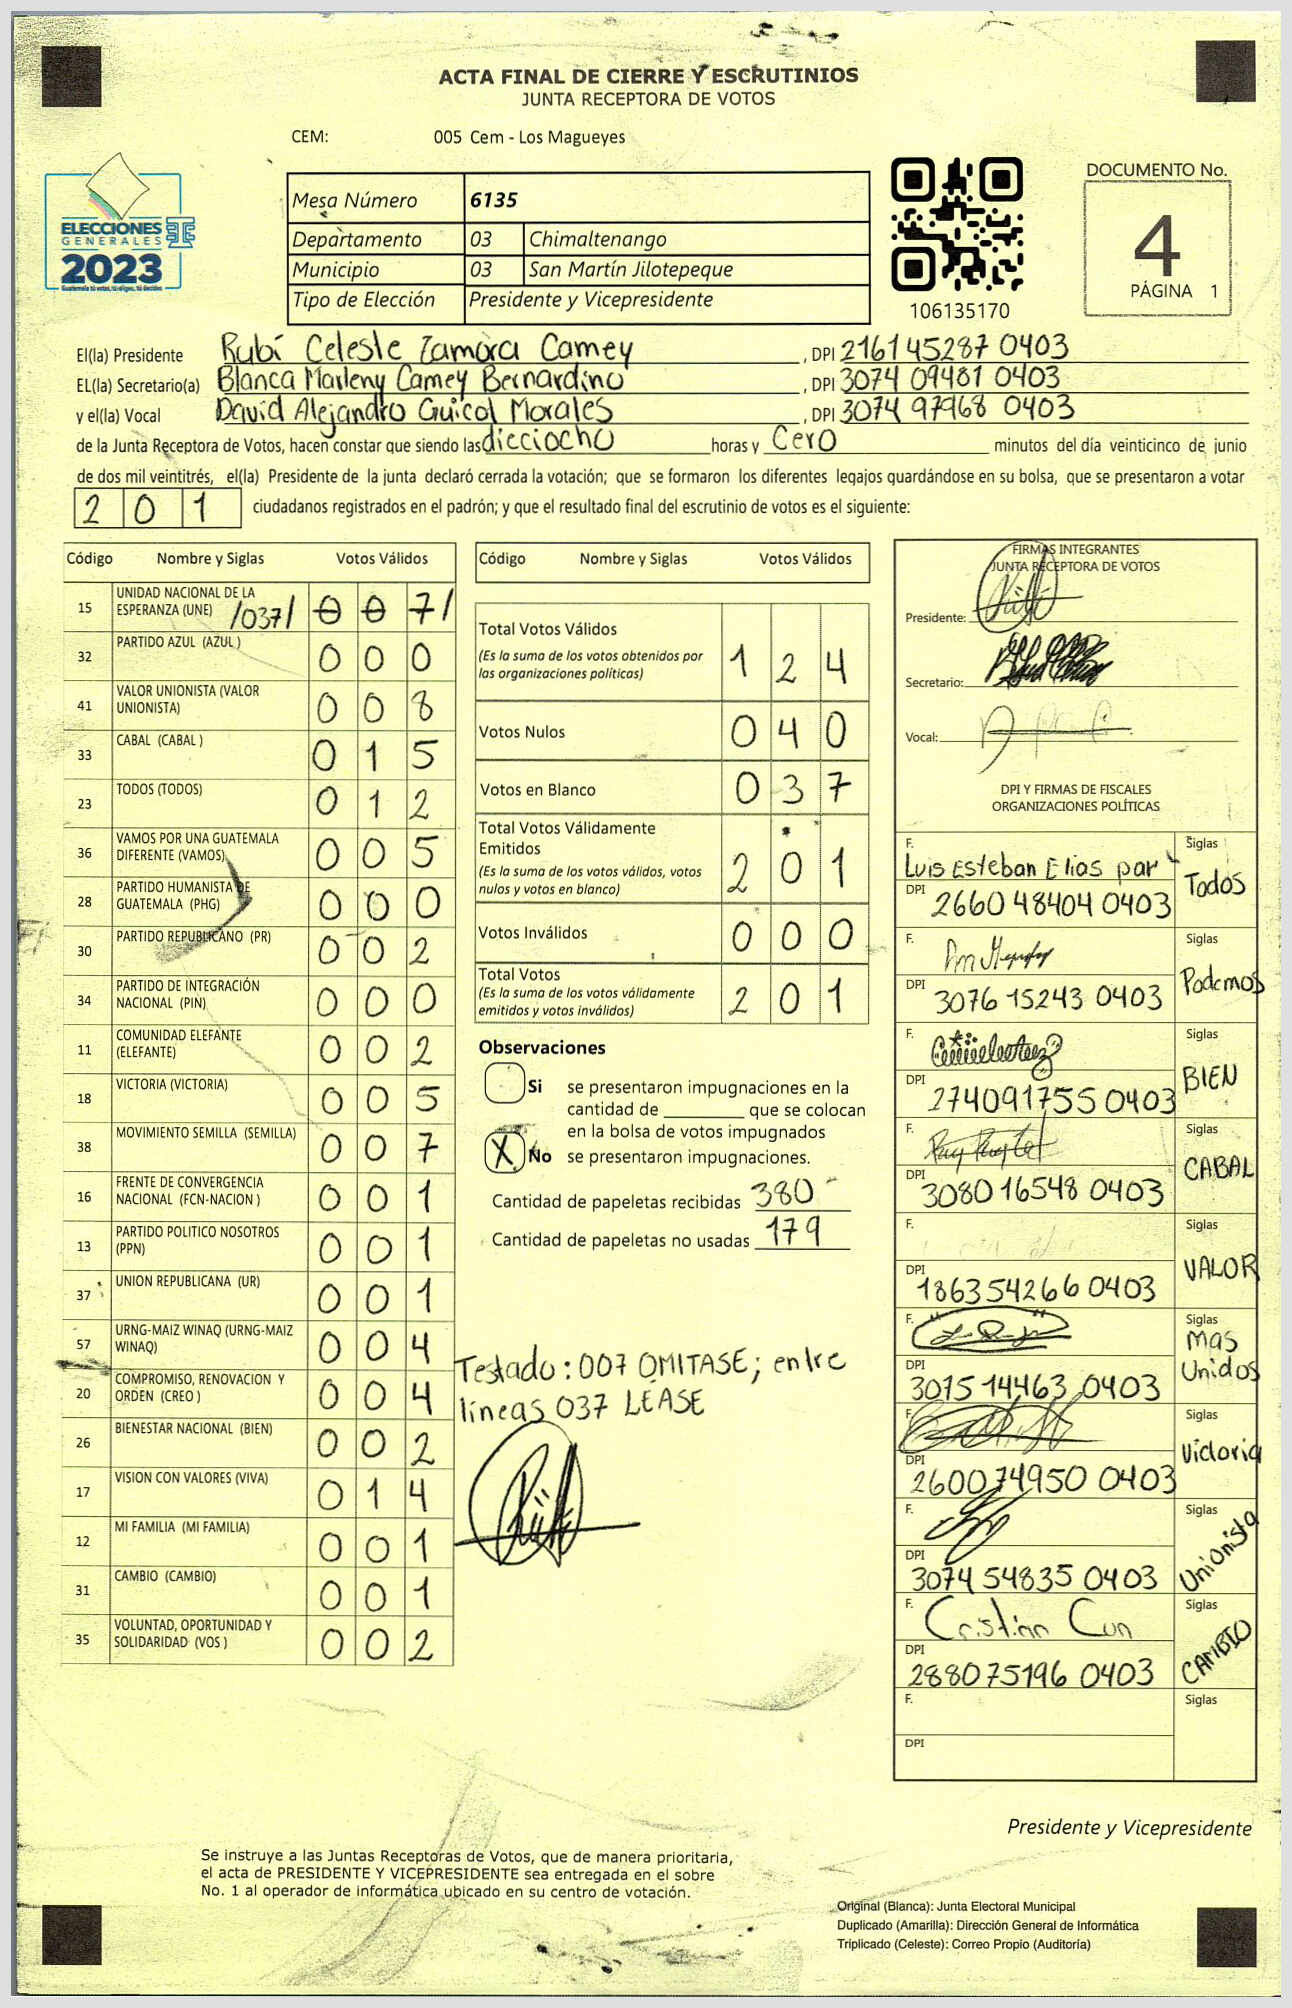 ACTA FINAL DE CIERRE Y ESCRUTINIOS
JUNTA RECEPTORA DE VOTOS
CEM: 005 Cem - Los Magueyes
ELECCIONES
GENERALES
2023
Guatemala tú votas, tú eliges, tú decides
Mesa Número 6135
Departamento 03 Chimaltenango
Municipio 03 San Martín Jilotepeque
Tipo de Elección Presidente y Vicepresidente
106135170
DOCUMENTO No.
4
PÁGINA 1
El(la) Presidente Rubí Celeste Zamora Camey , DPI 2161 45287 0403
EL(la) Secretario(a) Blanca Marleny Camey Bernardino , DPI 3074 09481 0403
y el(la) Vocal David Alejandro Guicol Morales , DPI 3074 97968 0403
de la Junta Receptora de Votos, hacen constar que siendo las dieciocho horas y Cero minutos del día veinticinco de junio
de dos mil veintitrés, el(la) Presidente de la junta declaró cerrada la votación; que se formaron los diferentes legajos guardándose en su bolsa, que se presentaron a votar
201 ciudadanos registrados en el padrón; y que el resultado final del escrutinio de votos es el siguiente:
Código Nombre y Siglas Votos Válidos
15 UNIDAD NACIONAL DE LA
ESPERANZA (UNE) /037/ 0 0 7/
32 PARTIDO AZUL (AZUL ) 0 0 0
41 VALOR UNIONISTA (VALOR
UNIONISTA) 0 0 8
33 CABAL (CABAL ) 0 1 5
23 TODOS (TODOS) 0 1 2
36 VAMOS POR UNA GUATEMALA
DIFERENTE (VAMOS) 0 0 5
28 PARTIDO HUMANISTA DE
GUATEMALA (PHG) 0 0 0
30 PARTIDO REPUBLICANO (PR) 0 0 2
34 PARTIDO DE INTEGRACIÓN
NACIONAL (PIN) 0 0 0
11 COMUNIDAD ELEFANTE
(ELEFANTE) 0 0 2
18 VICTORIA (VICTORIA) 0 0 5
38 MOVIMIENTO SEMILLA (SEMILLA) 0 0 7
16 FRENTE DE CONVERGENCIA
NACIONAL (FCN-NACION ) 0 0 1
13 PARTIDO POLITICO NOSOTROS
(PPN) 0 0 1
37 UNION REPUBLICANA (UR) 0 0 1
57 URNG-MAIZ WINAQ (URNG-MAIZ
WINAQ) 0 0 4
20 COMPROMISO, RENOVACION Y
ORDEN (CREO ) 0 0 4
26 BIENESTAR NACIONAL (BIEN) 0 0 2
17 VISION CON VALORES (VIVA) 0 1 4
12 MI FAMILIA (MI FAMILIA) 0 0 1
31 CAMBIO (CAMBIO) 0 0 1
35 VOLUNTAD, OPORTUNIDAD Y
SOLIDARIDAD (VOS ) 0 0 2
Código Nombre y Siglas Votos Válidos
Total Votos Válidos
(Es la suma de los votos obtenidos por
las organizaciones políticas) 1 2 4
Votos Nulos 0 4 0
Votos en Blanco 0 3 7
Total Votos Válidamente
Emitidos
(Es la suma de los votos válidos, votos
nulos y votos en blanco) 2 0 1
Votos Inválidos 0 0 0
Total Votos
(Es la suma de los votos válidamente
emitidos y votos inválidos) 2 0 1
Observaciones
Si se presentaron impugnaciones en la
cantidad de ________ que se colocan
en la bolsa de votos impugnados
X No se presentaron impugnaciones.
Cantidad de papeletas recibidas 380
Cantidad de papeletas no usadas 179
Testado: 007 OMITASE; entre
líneas 037 LÉASE
FIRMAS INTEGRANTES
JUNTA RECEPTORA DE VOTOS
Presidente:
Secretario:
Vocal:
DPI Y FIRMAS DE FISCALES
ORGANIZACIONES POLÍTICAS
F. Luis Esteban Elias par Siglas
DPI 2660 48404 0403 Todos
F. Siglas
DPI 3076 15243 0403 Podemos
F. Siglas
DPI 274091755 0403 BIEN
F. Siglas
DPI 3080 16548 0403 CABAL
F. Siglas
DPI 186354266 0403 VALOR
F. Siglas
DPI 3075 14463 0403 mas Unidos
F. Siglas
DPI 2600 74950 0403 Victoria
F. Siglas
DPI 3074 54835 0403 Unionista
F. Cristian Cun Siglas
DPI 288075196 0403 CAMBIO
F. Siglas
DPI
Presidente y Vicepresidente
Se instruye a las Juntas Receptoras de Votos, que de manera prioritaria,
el acta de PRESIDENTE Y VICEPRESIDENTE sea entregada en el sobre
No. 1 al operador de informática ubicado en su centro de votación.
Original (Blanca): Junta Electoral Municipal
Duplicado (Amarilla): Dirección General de Informática
Triplicado (Celeste): Correo Propio (Auditoría)